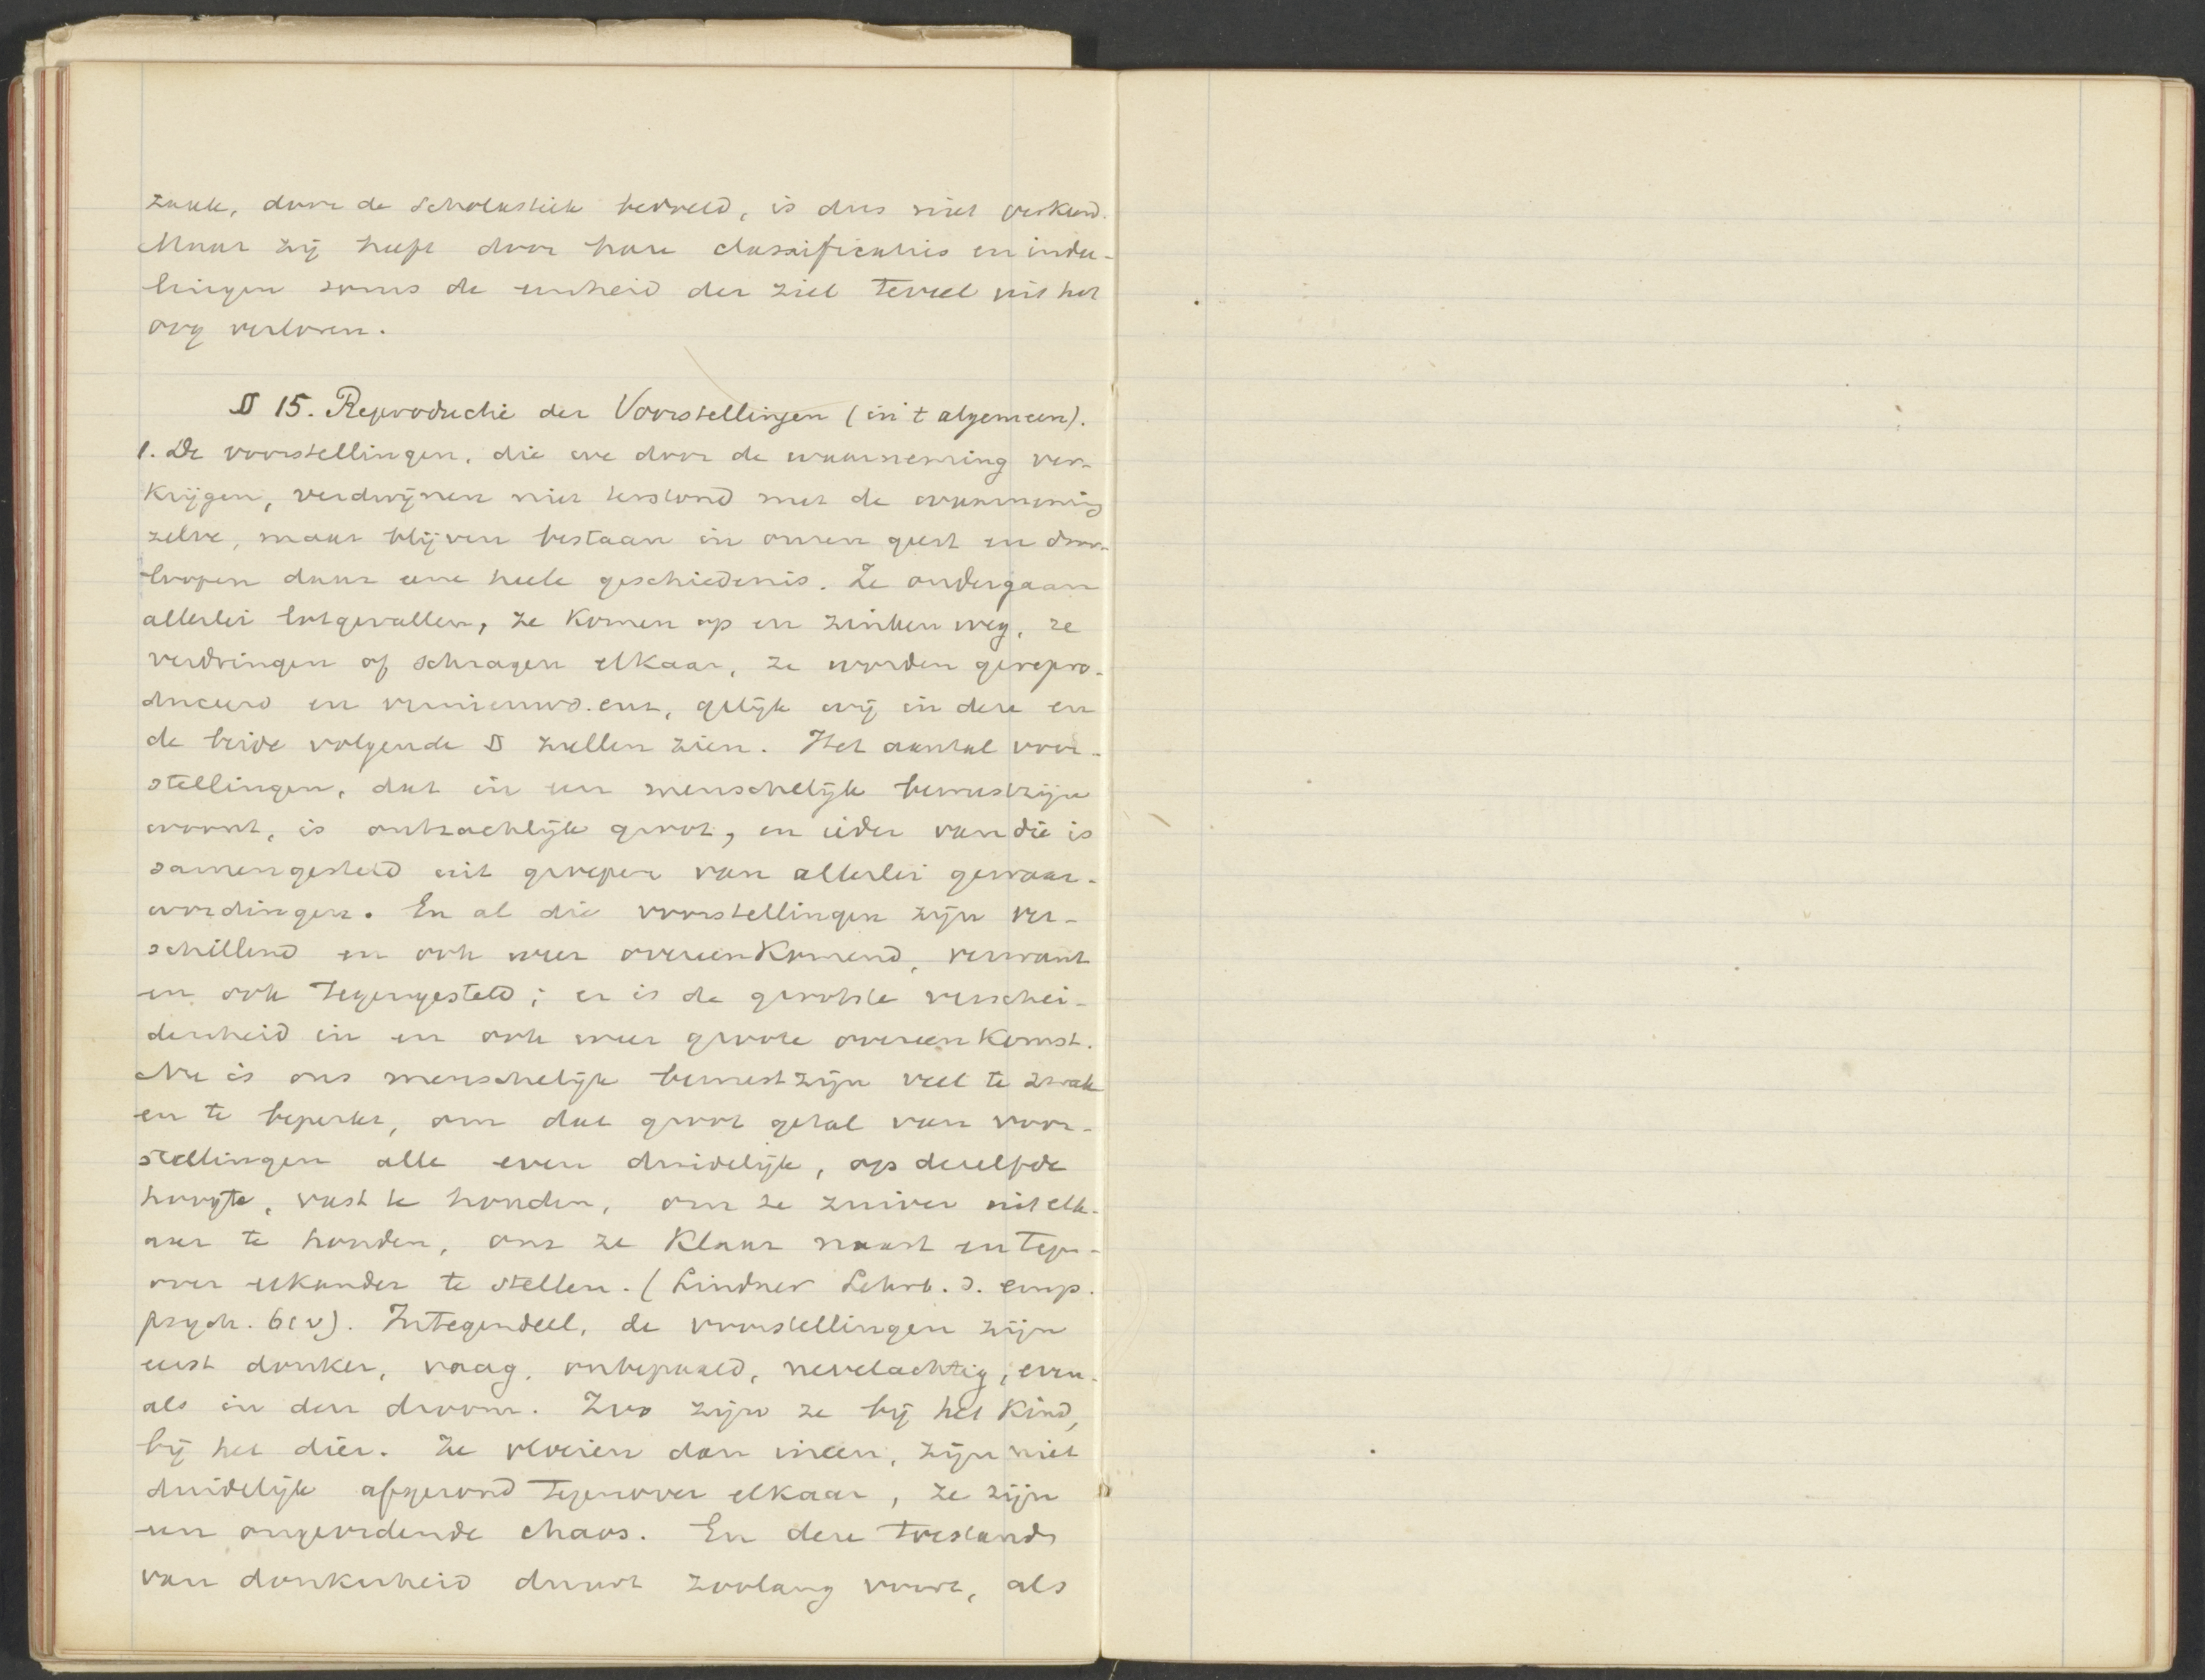 zaak, door de Scholastiek bedoeld, is dus niet verkeerd.
Maar zij heeft door hare classificaties en indee-
lingen soms de eenheid der ziel teveel uit het
oog verloren.
§ 15. Reproductie der Voorstellingen (in 't algemeen).
1. De voorstellingen, die we door de waarneming ver-
krijgen, verdwijnen niet terstond met de waarneming
zelve, maar blijven bestaan in onzen geest en door-
loopen daar eene heele geschiedenis. Ze ondergaan
allerlei lotgevallen, ze komen op en zinken weg, ze
verdringen of schragen elkaar, ze worden gerepro-
duceerd en vernieuwd. enz, gelijk wij in deze en
de beide volgende § zullen zien. Het aantal voor-
stellingen, dat in een menschelijk bewustzijn
woont, is ontzachlijk groot, en ieder van die is
samengesteld uit groepen van allerlei gewaar-
wordingen. En al die voorstellingen zijn ver-
schillend en ook weer overeenkomend, verwant
en ook tegengesteld; er is de grootste verschei-
denheid in en ook weer groote overeenkomst.
Nu is ons menschelijk bewustzijn veel te zwak
en te beperkt, om dat groot getal van voor-
stellingen alle even duidelijk, op dezelfde
hoogte, vast te houden, om ze zuiver uit elk-
aar te houden, om ze klaar naast en tegen-
over elkander te stellen. (Lindner Lehrb. d. emp.
psych. 6(v). Integendeel, de voorstellingen zijn
eerst donker, vaag, onbepaald, nevelachtig, even-
als in den droom. Zoo zijn ze bij het kind,
bij het dier. Ze vloeien dan ineen, zijn niet
duidelijk afgerond tegenover elkaar, ze zijn
een ongeordende chaos. En deze toestand
van donkerheid duurt zoolang voort, als